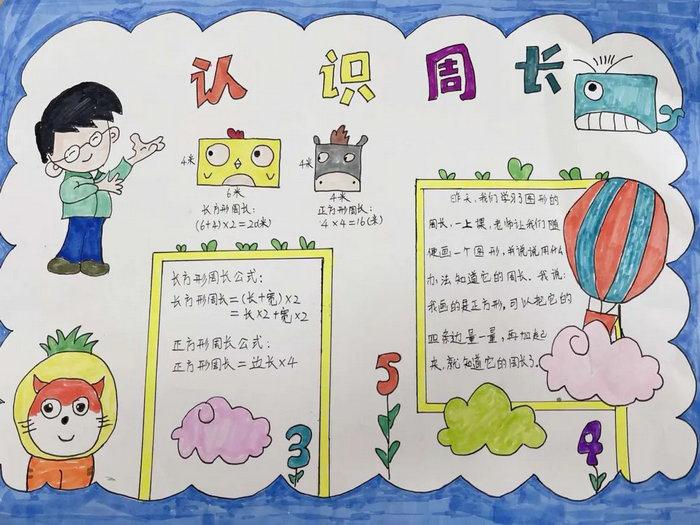 认识周长
4米
6米
长方形周长:
(6+4)×2=20(米)
4米
4米
正方形周长:
4×4=16(米)
长方形周长公式:
长方形周长=(长+宽)×2
=长×2+宽×2
正方形周长公式:
正方形周长=边长×4
昨天,我们学习了图形的
周长,一上课,老师让我们随
便画一个图形,并说说用什么
办法知道它的周长。我说:
我画的是正方形,可以把它的
四条边量一量,再加起
来,就知道它的周长了。
3
5
4